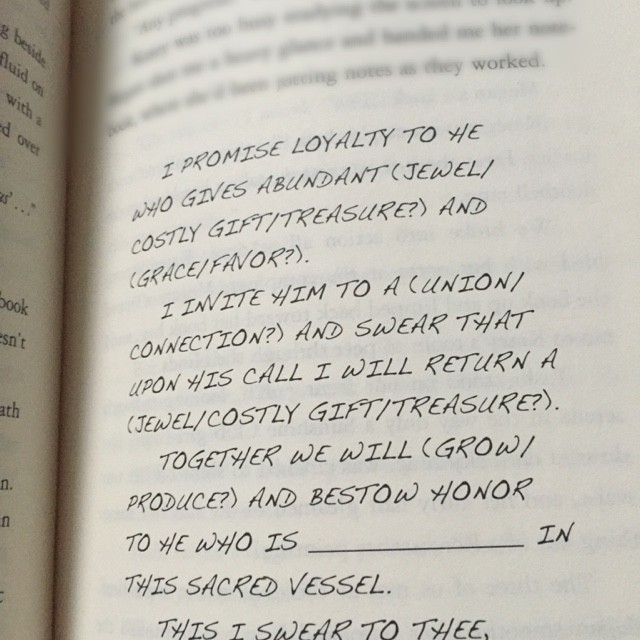 g beside
fluid on
with a
ed over
book
esn't
ath
n.
n
was too busy studying the screen to look up.
me a heavy glance and handed me her note-
book, where she'd been jotting notes as they worked.
I PROMISE LOYALTY TO HE
WHO GIVES ABUNDANT (JEWEL/
COSTLY GIFT/TREASURE?) AND
(GRACE/FAVOR?).
I INVITE HIM TO A (UNION/
CONNECTION?) AND SWEAR THAT
UPON HIS CALL I WILL RETURN A
(JEWEL/COSTLY GIFT/TREASURE?).
TOGETHER WE WILL (GROW/
PRODUCE?) AND BESTOW HONOR
TO HE WHO IS ____________ IN
THIS SACRED VESSEL.
THIS I SWEAR TO THEE,